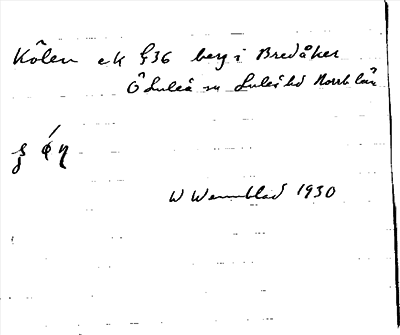 Kölen ek G36 berg i Bredåker
Ö Luleå sn Luleå hd Norrb län
W Wennblad 1930